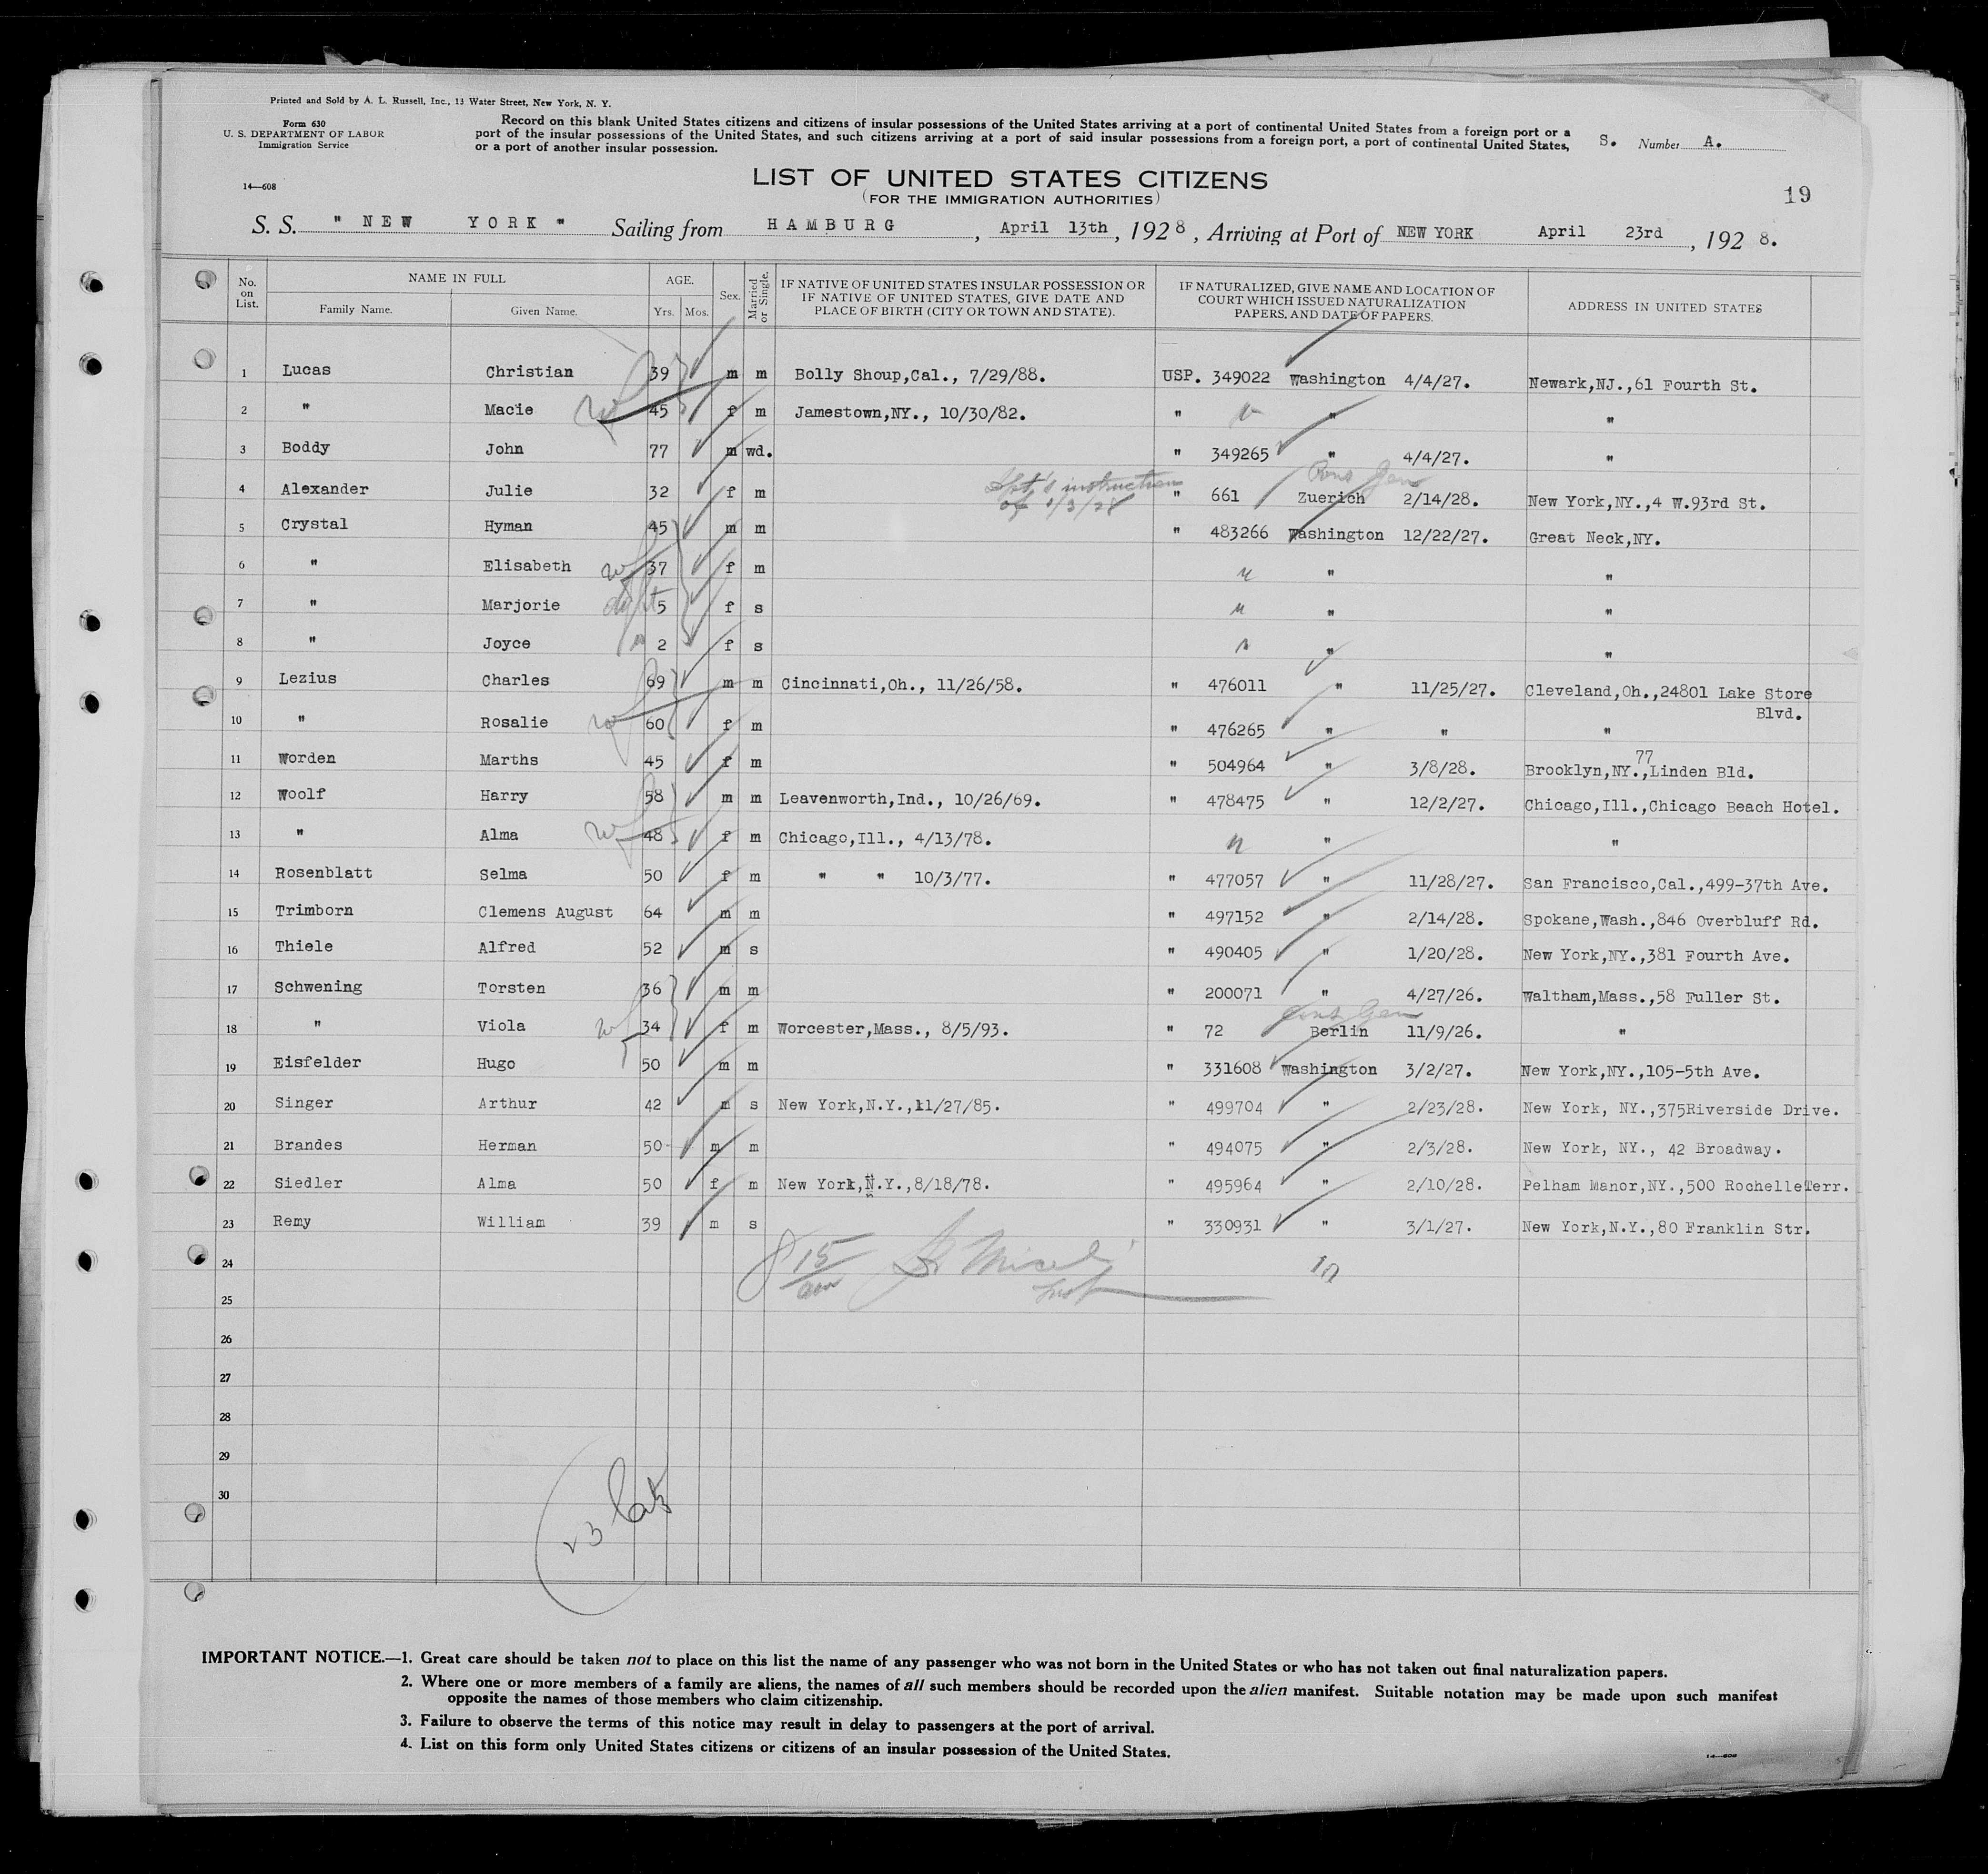 Printed and Sold by A. L. Russell, Inc., 13 Water Street, New York, N. Y.
Form 630
U. S. DEPARTMENT OF LABOR
Immigration Service
14—608
Record on this blank United States citizens and citizens of insular possessions of the United States arriving at a port of continental United States from a foreign port or a
port of the insular possessions of the United States, and such citizens arriving at a port of said insular possessions from a foreign port, a port of continental United States,
or a port of another insular possession.
S. Number A.
LIST OF UNITED STATES CITIZENS
(FOR THE IMMIGRATION AUTHORITIES)
19
S. S. " NEW YORK " Sailing from HAMBURG, April 13th, 1928, Arriving at Port of NEW YORK April 23rd, 1928.
No. on List. NAME IN FULL Family Name. Given Name. AGE. Yrs. Mos. Sex. Married or Single. IF NATIVE OF UNITED STATES INSULAR POSSESSION OR IF NATIVE OF UNITED STATES, GIVE DATE AND PLACE OF BIRTH (CITY OR TOWN AND STATE). IF NATURALIZED, GIVE NAME AND LOCATION OF COURT WHICH ISSUED NATURALIZATION PAPERS, AND DATE OF PAPERS. ADDRESS IN UNITED STATES
1 Lucas Christian 39 m m Bolly Shoup,Cal., 7/29/88. USP. 349022 Washington 4/4/27. Newark,NJ.,61 Fourth St.
2 " Macie wf 45 f m Jamestown,NY., 10/30/82. " " " "
3 Boddy John 77 m wd. " 349265 " 4/4/27. "
4 Alexander Julie 32 f m " 661 Zuerich Cons Gen 2/14/28. New York,NY.,4 W.93rd St.
5 Crystal Hyman 45 m m " 483266 Washington 12/22/27. Great Neck,NY.
6 " Elisabeth wf 37 f m " " "
7 " Marjorie dght 5 f s " " "
8 " Joyce " 2 f s " " "
9 Lezius Charles 69 m m Cincinnati,Oh., 11/26/58. " 476011 " 11/25/27. Cleveland,Oh.,24801 Lake Store
Blvd.
10 " Rosalie wf 60 f m " 476265 " " "
11 Worden Marths 45 f m " 504964 " 3/8/28. Brooklyn,NY.,77 Linden Bld.
12 Woolf Harry 58 m m Leavenworth,Ind., 10/26/69. " 478475 " 12/2/27. Chicago,Ill.,Chicago Beach Hotel.
13 " Alma wf 48 f m Chicago,Ill., 4/13/78. " " "
14 Rosenblatt Selma 50 f m " " 10/3/77. " 477057 " 11/28/27. San Francisco,Cal.,499-37th Ave.
15 Trimborn Clemens August 64 m m " 497152 " 2/14/28. Spokane,Wash.,846 Overbluff Rd.
16 Thiele Alfred 52 m s " 490405 " 1/20/28. New York,NY.,381 Fourth Ave.
17 Schwening Torsten 36 m m " 200071 " 4/27/26. Waltham,Mass.,58 Fuller St.
18 " Viola wf 34 f m Worcester,Mass., 8/5/93. " 72 Berlin Cons Gen 11/9/26. "
19 Eisfelder Hugo 50 m m " 331608 Washington 3/2/27. New York,NY.,105-5th Ave.
20 Singer Arthur 42 m s New York,N.Y.,11/27/85. " 499704 " 2/23/28. New York, NY.,375Riverside Drive.
21 Brandes Herman 50 m m " 494075 " 2/3/28. New York, NY., 42 Broadway.
22 Siedler Alma 50 f m New York,N.Y.,8/18/78. " 495964 " 2/10/28. Pelham Manor,NY.,500 RochelleTerr.
23 Remy William 39 m s " 330931 " 3/1/27. New York,N.Y.,80 Franklin Str.
24
25
26
27
28
29
30
IMPORTANT NOTICE.—1. Great care should be taken not to place on this list the name of any passenger who was not born in the United States or who has not taken out final naturalization papers.
2. Where one or more members of a family are aliens, the names of all such members should be recorded upon the alien manifest. Suitable notation may be made upon such manifest
opposite the names of those members who claim citizenship.
3. Failure to observe the terms of this notice may result in delay to passengers at the port of arrival.
4. List on this form only United States citizens or citizens of an insular possession of the United States.
14—608